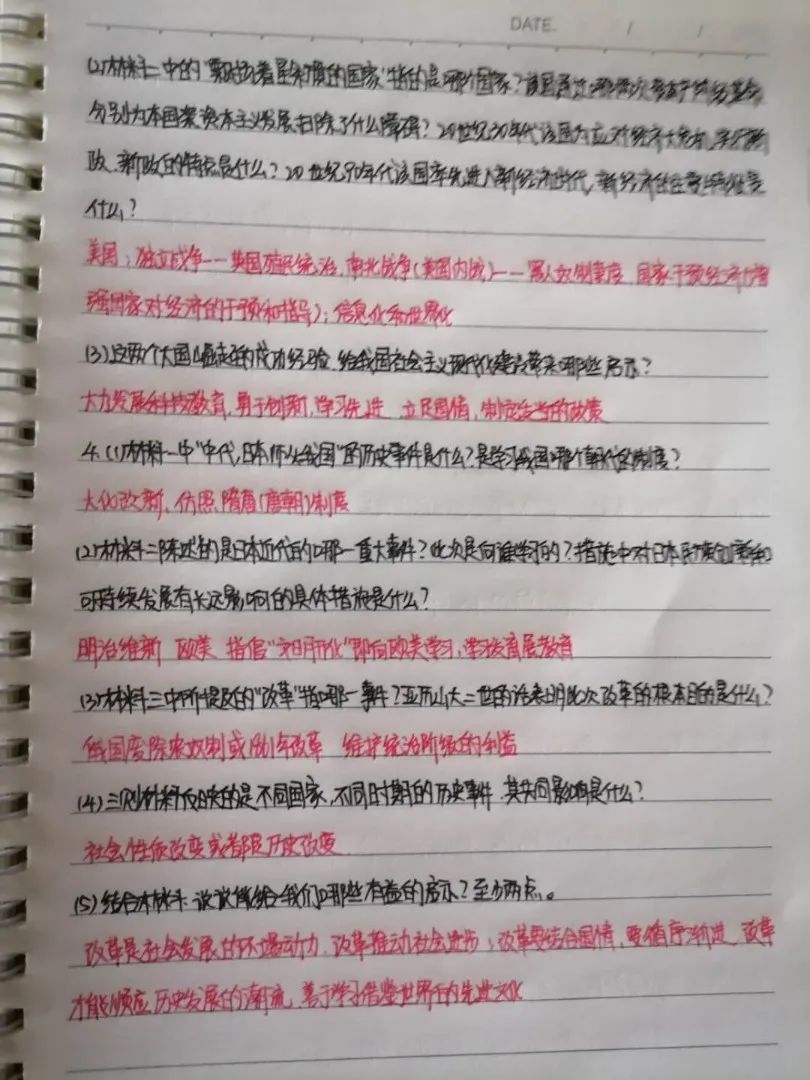 DATE. / /
(2)材料二中的"飘扬着星条旗的国家"指的是哪个国家?该国通过哪两次资产阶级革命
分别为本国资本主义发展扫除了什么障碍?20世纪30年代该国为应对经济大危机,实行新
政、新政的特点是什么?20世纪90年代该国率先进入新经济时代,新经济的主要特征是
什么?
美国:独立战争——英国殖民统治,南北战争(美国内战)——黑人奴隶制度 国家干预经济(加
强国家对经济的干预和指导);信息化和全球化
(3)这两个大国崛起的成功经验,给我国社会主义现代化建设带来哪些启示?
大力发展科技教育,勇于创新,学习先进 立足国情,制定适当的政策
4.(1)材料一中"中代,日本师从我国"的历史事件是什么?是学习我国哪个朝代的制度?
大化改新、仿照隋唐(唐朝)制度
(2)材料二陈述的是日本近代的哪一重大事件?此次是向谁学习的?措施中对日本民族创新和
可持续发展有长远影响的具体措施是什么?
明治维新 欧美 提倡"文明开化"即向欧美学习,学发育展教育
(3)材料三中所提及的"改革"指哪一事件?亚历山大二世的话表明此次改革的根本目的是什么?
俄国废除农奴制或1861年改革 维护统治阶级的利益
(4)三则材料反映的是不同国家,不同时期的历史事件 其共同影响是什么?
社会性质改变或都是历史改变
(5)结合材料 谈谈能给我们哪些有益的启示?至少两点。
改革是社会发展的不竭动力,改革推动社会进步;改革要结合国情,要循序渐进 改革
才能顺应历史发展的潮流,善于学习借鉴世界的先进文化